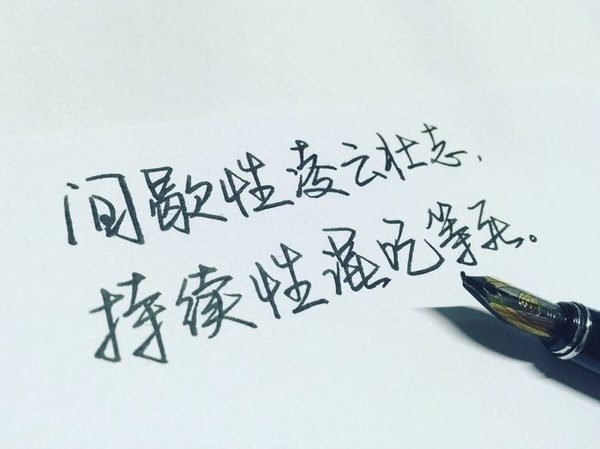 间歇性凌云壮志，
持续性混吃等死。